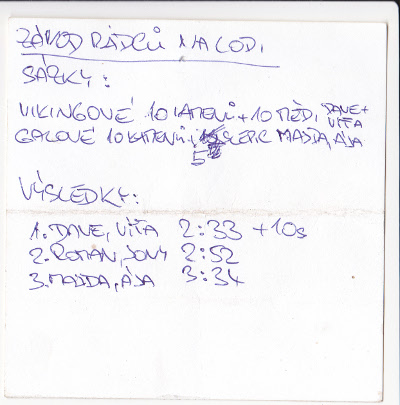 ZÁVOD RÁDCŮ NA LODI
SÁZKY:
VIKINGOVÉ 10 KAMENŮ + 10 MĚDI DANE +
VÍŤA
GALOVÉ 10 KAMENŮ SLEPIC MAJDA, ÁJA
5
VÝSLEDKY:
1. DANE, VÍŤA 2:33 +10s
2. ROMAN, JONY 2:52
3. MAJDA, ÁJA 3:34